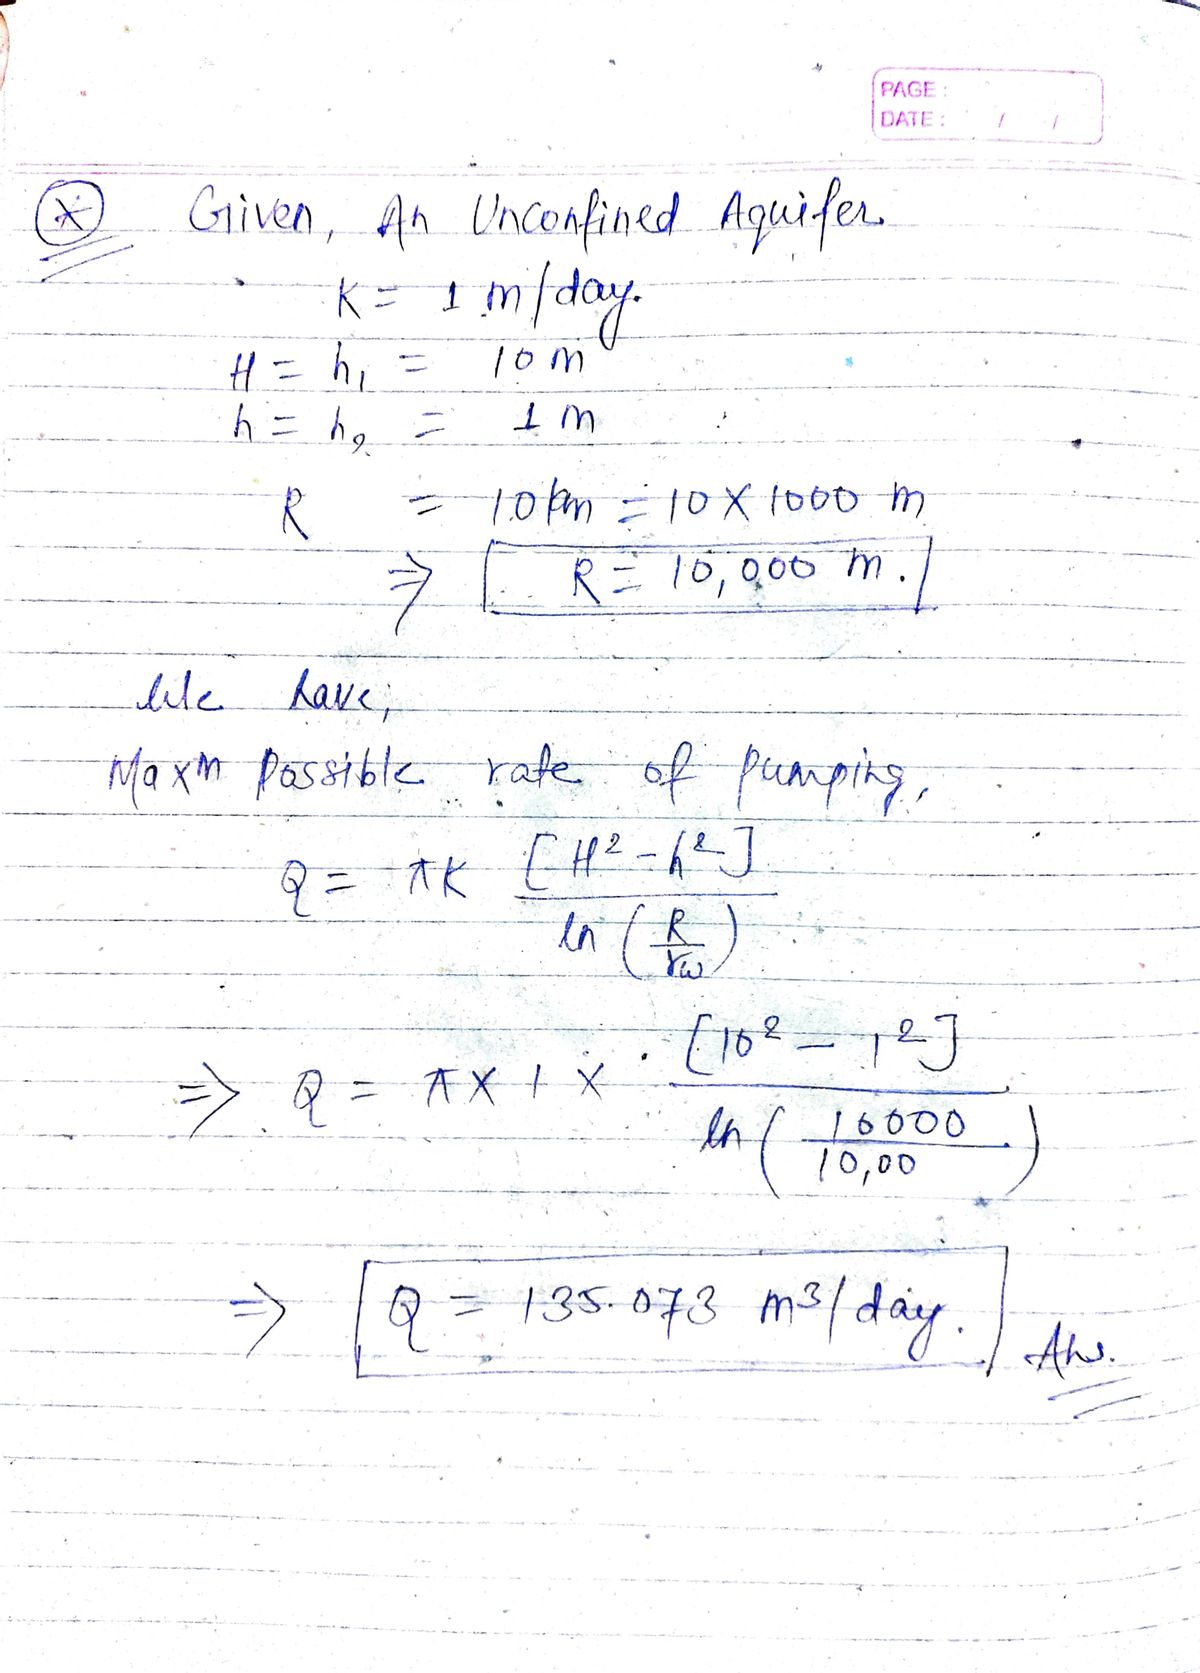 PAGE :
DATE : / /
* Given, An Unconfined Aquifer.
K = 1 m/day.
H = h₁ = 10 m
h = h₂ = 1 m
R = 10 km = 10 X 1000 m
⇒ R = 10,000 m.
We have;
Maxm possible rate of pumping,
Q = πK [H² - h²] / ln (R/rw)
⇒ Q = π X 1 X [10² - 1²] / ln (10000/10,00)
⇒ Q = 135.073 m³/day. Ans.